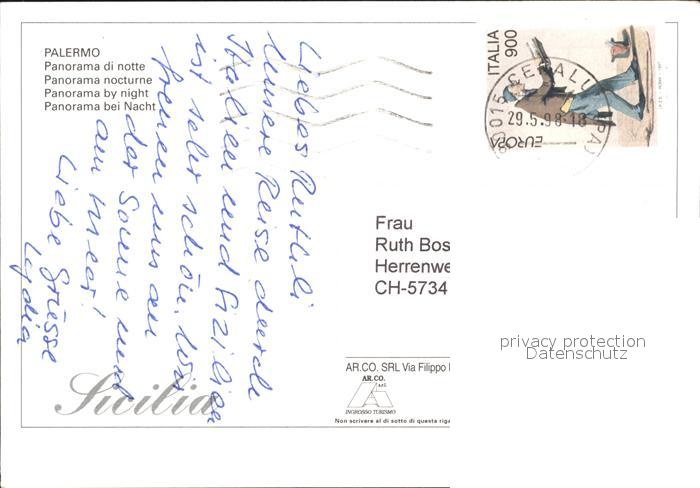 PALERMO
Panorama di notte
Panorama nocturne
Panorama by night
Panorama bei Nacht
Liebes Ruthli
Unsere Reise durch
Italien und Sizilien
ist sehr schön. Wir
freuen uns an
der Sonne und
am Meer!
Liebe Grüsse
Lydia
ITALIA
900
EUROPA
90015 CEFALU (PA)
29.5.98-18
Frau
Ruth Bos
Herrenwe
CH-5734
privacy protection
Datenschutz
AR.CO. SRL Via Filippo
AR.CO.
s.r.l.
INGROSSO TURISMO
Non scrivere al di sotto di questa riga
Sicilia